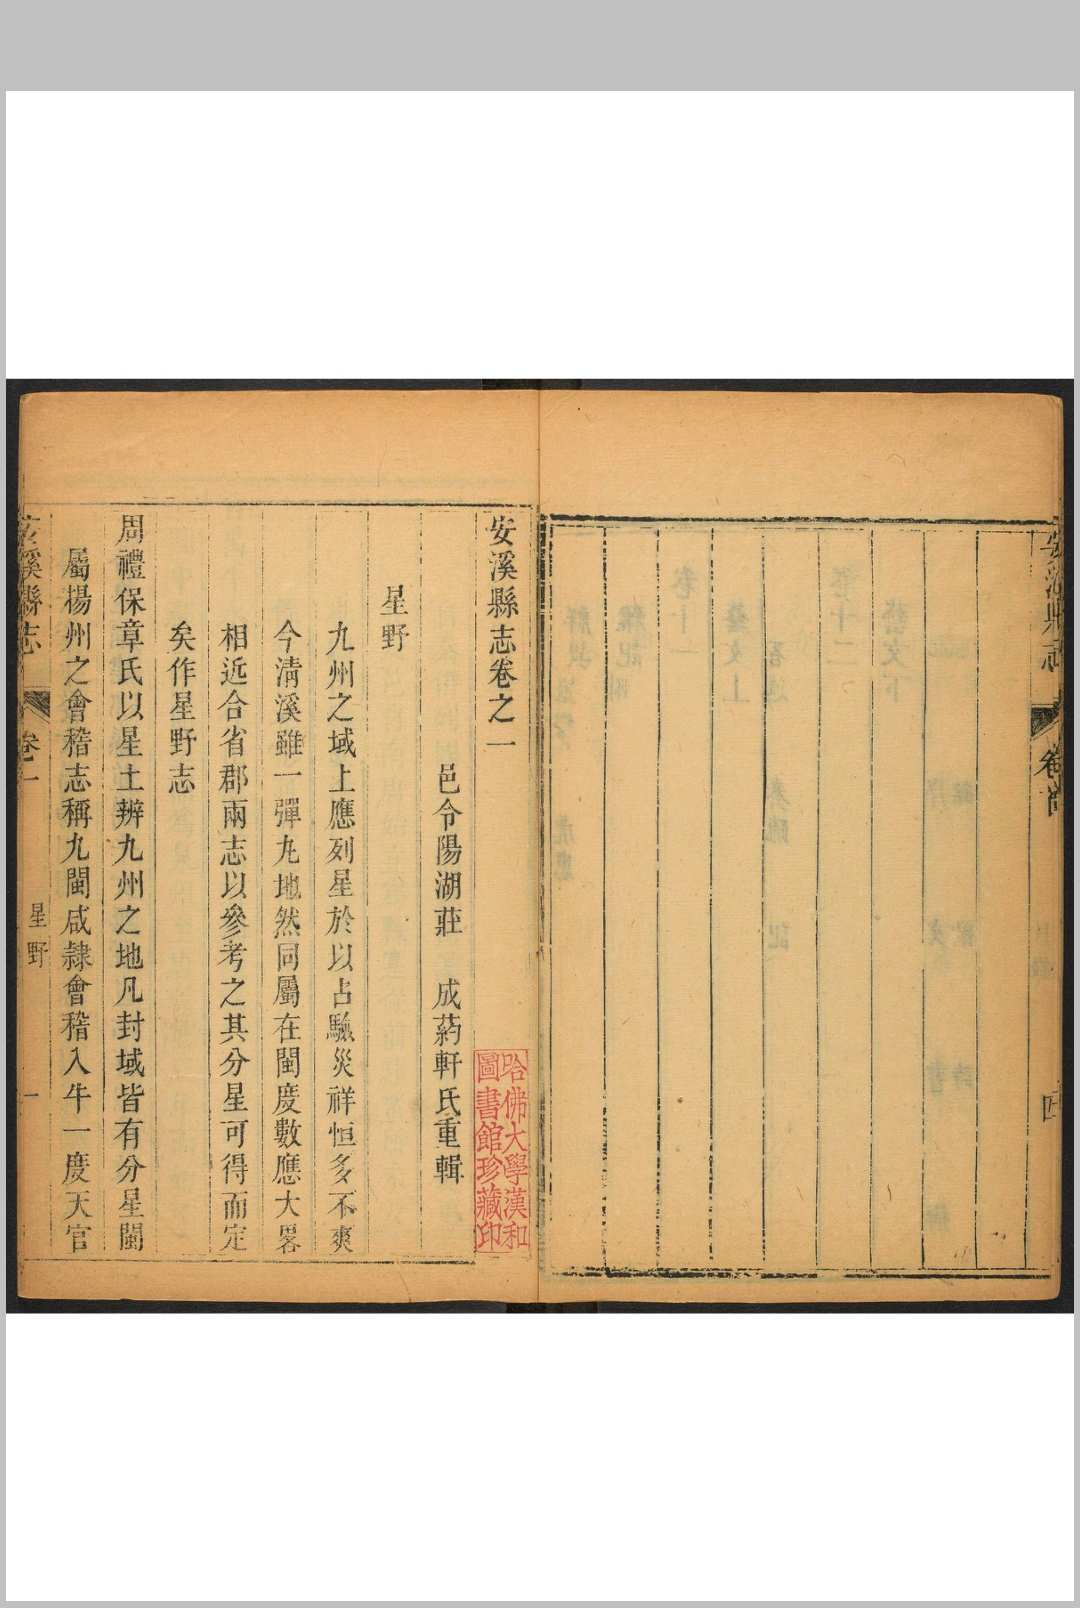 安溪縣志
卷首
四
安溪縣志卷之一
邑令陽湖莊 成葯軒氏重輯
星野
九州之域上應列星於以占驗災祥恒多不爽
今清溪雖一彈丸地然同屬在閩度數應大畧
相近合省郡兩志以參考之其分星可得而定
矣作星野志
周禮保章氏以星土辨九州之地凡封域皆有分星閩
屬揚州之會稽志稱九閩咸隸會稽入牛一度天官
安溪縣志
卷一
星野
一
哈佛大學漢和
圖書館珍藏印